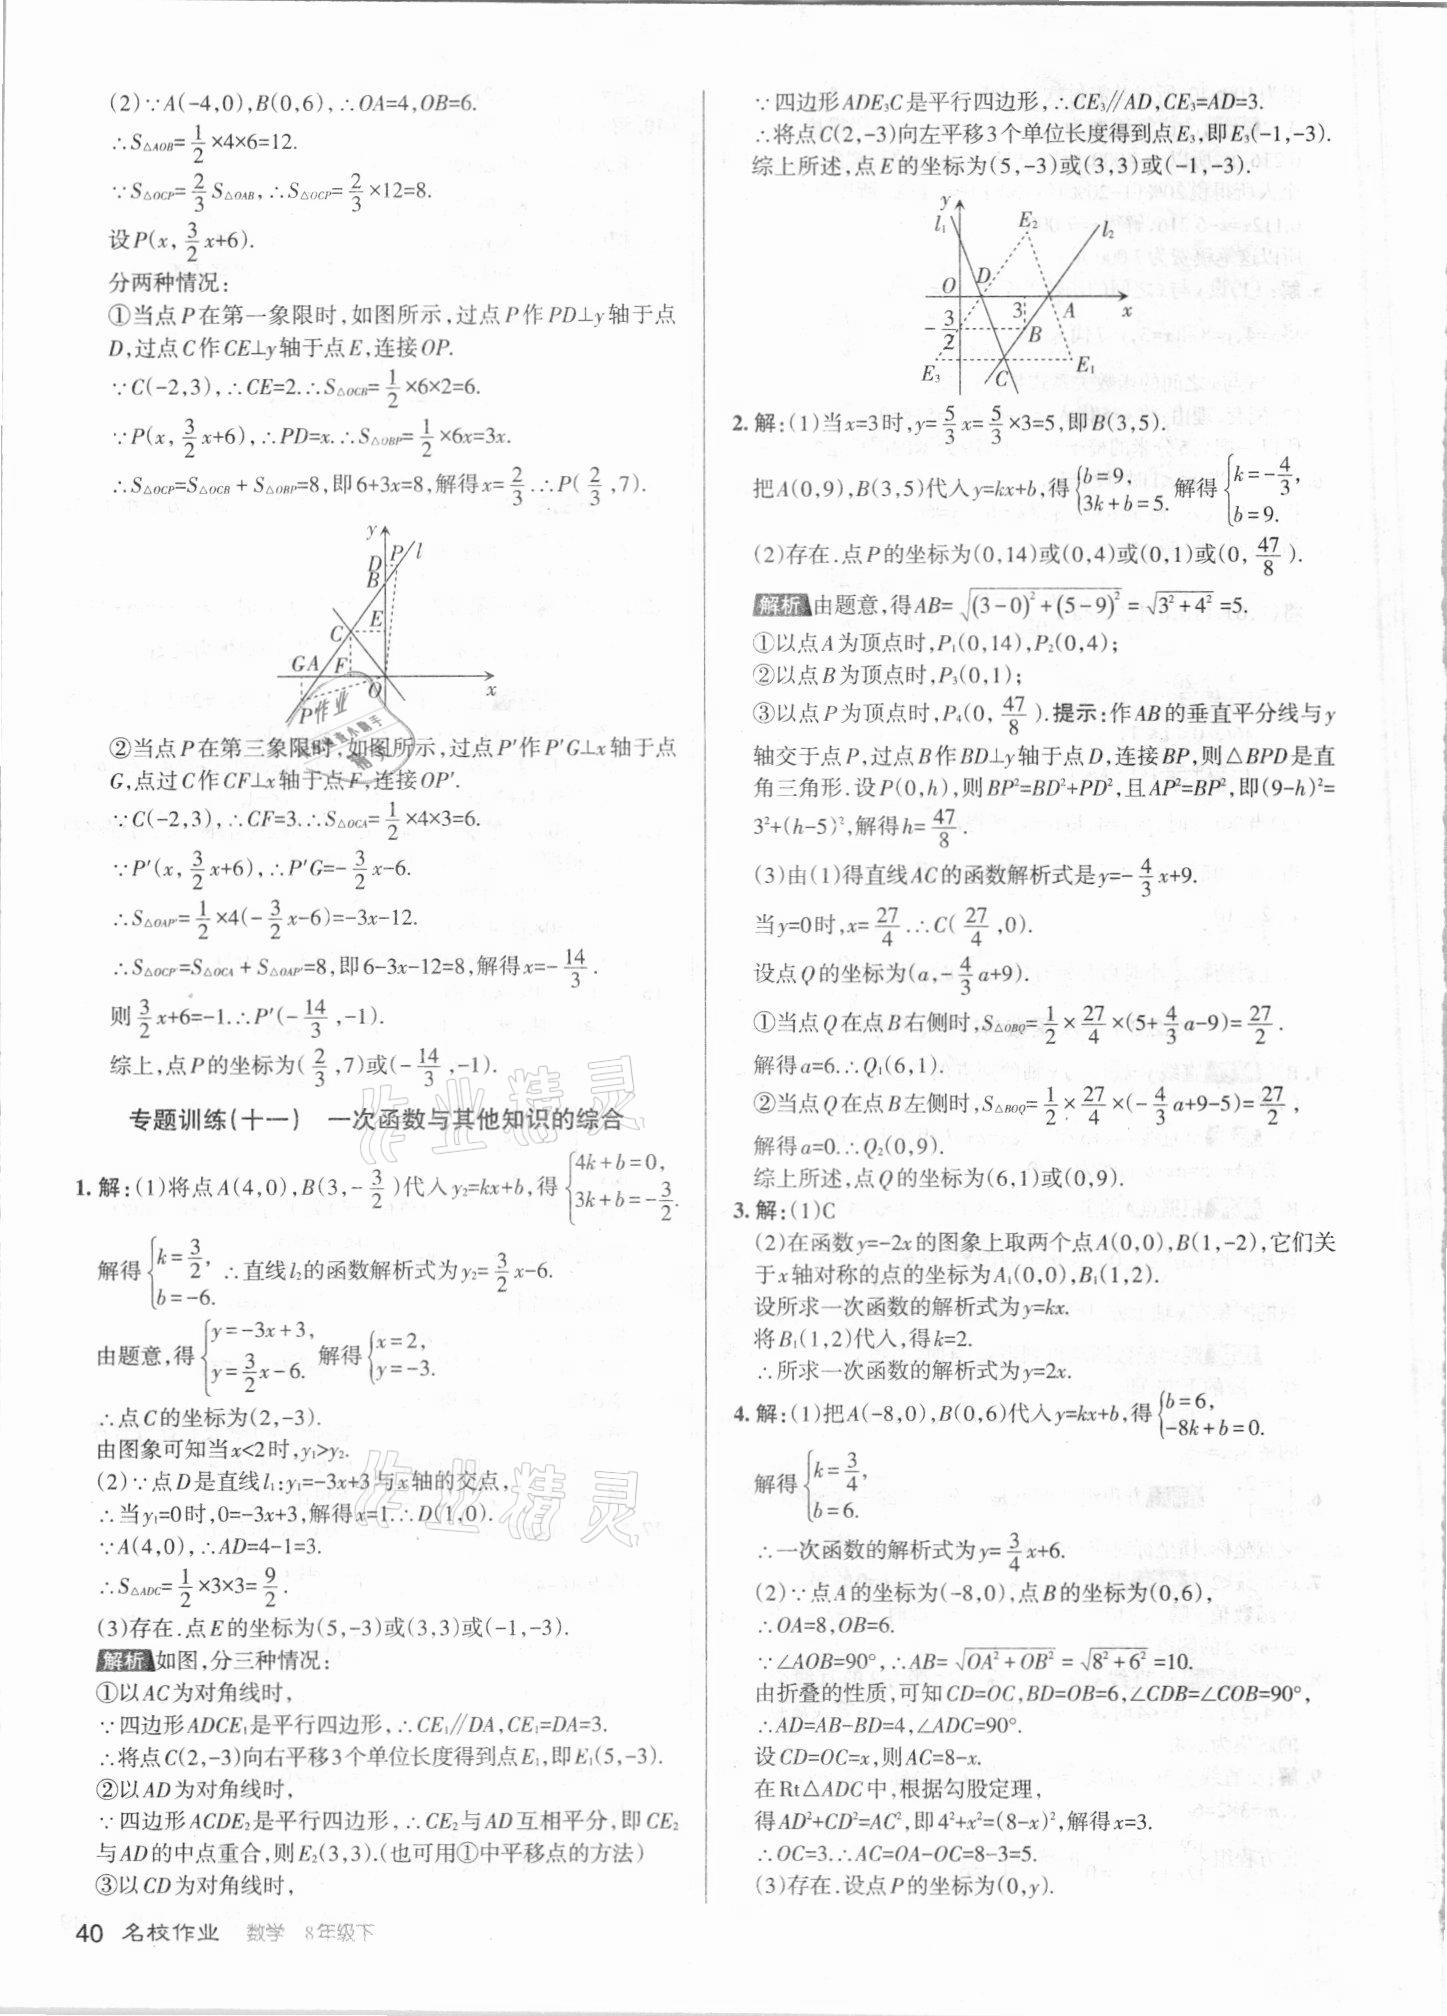 (2)∵A(-4,0),B(0,6),∴OA=4,OB=6.
∴S△AOB=1/2×4×6=12.
∵S△OCP=2/3S△OAB,∴S△OCP=2/3×12=8.
设P(x,3/2x+6).
分两种情况:
①当点P在第一象限时,如图所示,过点P作PD⊥y轴于点
D,过点C作CE⊥y轴于点E,连接OP.
∵C(-2,3),∴CE=2.∴S△OCB=1/2×6×2=6.
∵P(x,3/2x+6),∴PD=x.∴S△OBP=1/2×6x=3x.
∴S△OCP=S△OCB+S△OBP=8,即6+3x=8,解得x=2/3.∴P(2/3,7).
y
D P l
B
C E
G A F
O x
P'
②当点P在第三象限时,如图所示,过点P'作P'G⊥x轴于点
G,点过C作CF⊥x轴于点F,连接OP'.
∵C(-2,3),∴CF=3.∴S△OCA=1/2×4×3=6.
∵P'(x,3/2x+6),∴P'G=-3/2x-6.
∴S△OAP'=1/2×4(-3/2x-6)=-3x-12.
∴S△OCP'=S△OCA+S△OAP'=8,即6-3x-12=8,解得x=-14/3.
则3/2x+6=-1.∴P'(-14/3,-1).
综上,点P的坐标为(2/3,7)或(-14/3,-1).
专题训练(十一) 一次函数与其他知识的综合
1.解:(1)将点A(4,0),B(3,-3/2)代入y₂=kx+b,得{4k+b=0, 3k+b=-3/2.
解得{k=3/2, b=-6. ∴直线l₂的函数解析式为y₂=3/2x-6.
由题意,得{y=-3x+3, y=3/2x-6. 解得{x=2, y=-3.
∴点C的坐标为(2,-3).
由图象可知当x<2时,y₁>y₂.
(2)∵点D是直线l₁:y₁=-3x+3与x轴的交点,
∴当y₁=0时,0=-3x+3,解得x=1.∴D(1,0).
∵A(4,0),∴AD=4-1=3.
∴S△ADC=1/2×3×3=9/2.
(3)存在.点E的坐标为(5,-3)或(3,3)或(-1,-3).
解析 如图,分三种情况:
①以AC为对角线时,
∵四边形ADCE₁是平行四边形,∴CE₁∥DA,CE₁=DA=3.
∴将点C(2,-3)向右平移3个单位长度得到点E₁,即E₁(5,-3).
②以AD为对角线时,
∵四边形ACDE₂是平行四边形,∴CE₂与AD互相平分,即CE₂
与AD的中点重合,则E₂(3,3).(也可用①中平移点的方法)
③以CD为对角线时,
40 名校作业 数学 8年级下
∵四边形ADE₃C是平行四边形,∴CE₃∥AD,CE₃=AD=3.
∴将点C(2,-3)向左平移3个单位长度得到点E₃,即E₃(-1,-3).
综上所述,点E的坐标为(5,-3)或(3,3)或(-1,-3).
y E₂
l₁ l₂
D
O 3 A x
-3/2 B
E₃ C E₁
2.解:(1)当x=3时,y=5/3x=5/3×3=5,即B(3,5).
把A(0,9),B(3,5)代入y=kx+b,得{b=9, 3k+b=5. 解得{k=-4/3, b=9.
(2)存在.点P的坐标为(0,14)或(0,4)或(0,1)或(0,47/8).
解析 由题意,得AB=√((3-0)²+(5-9)²)=√(3²+4²)=5.
①以点A为顶点时,P₁(0,14),P₂(0,4);
②以点B为顶点时,P₃(0,1);
③以点P为顶点时,P₄(0,47/8).提示:作AB的垂直平分线与y
轴交于点P,过点B作BD⊥y轴于点D,连接BP,则△BPD是直
角三角形.设P(0,h),则BP²=BD²+PD²,且AP²=BP²,即(9-h)²=
3²+(h-5)²,解得h=47/8.
(3)由(1)得直线AC的函数解析式是y=-4/3x+9.
当y=0时,x=27/4.∴C(27/4,0).
设点Q的坐标为(a,-4/3a+9).
①当点Q在点B右侧时,S△OBQ=1/2×27/4×(5+4/3a-9)=27/2.
解得a=6.∴Q₁(6,1).
②当点Q在点B左侧时,S△BOQ=1/2×27/4×(-4/3a+9-5)=27/2,
解得a=0.∴Q₂(0,9).
综上所述,点Q的坐标为(6,1)或(0,9).
3.解:(1)C
(2)在函数y=-2x的图象上取两个点A(0,0),B(1,-2),它们关
于x轴对称的点的坐标为A₁(0,0),B₁(1,2).
设所求一次函数的解析式为y=kx.
将B₁(1,2)代入,得k=2.
∴所求一次函数的解析式为y=2x.
4.解:(1)把A(-8,0),B(0,6)代入y=kx+b,得{b=6, -8k+b=0.
解得{k=3/4, b=6.
∴一次函数的解析式为y=3/4x+6.
(2)∵点A的坐标为(-8,0),点B的坐标为(0,6),
∴OA=8,OB=6.
∵∠AOB=90°,∴AB=√(OA²+OB²)=√(8²+6²)=10.
由折叠的性质,可知CD=OC,BD=OB=6,∠CDB=∠COB=90°,
∴AD=AB-BD=4,∠ADC=90°.
设CD=OC=x,则AC=8-x.
在Rt△ADC中,根据勾股定理,
得AD²+CD²=AC²,即4²+x²=(8-x)²,解得x=3.
∴OC=3.∴AC=OA-OC=8-3=5.
(3)存在.设点P的坐标为(0,y).
作业精灵
作业精灵